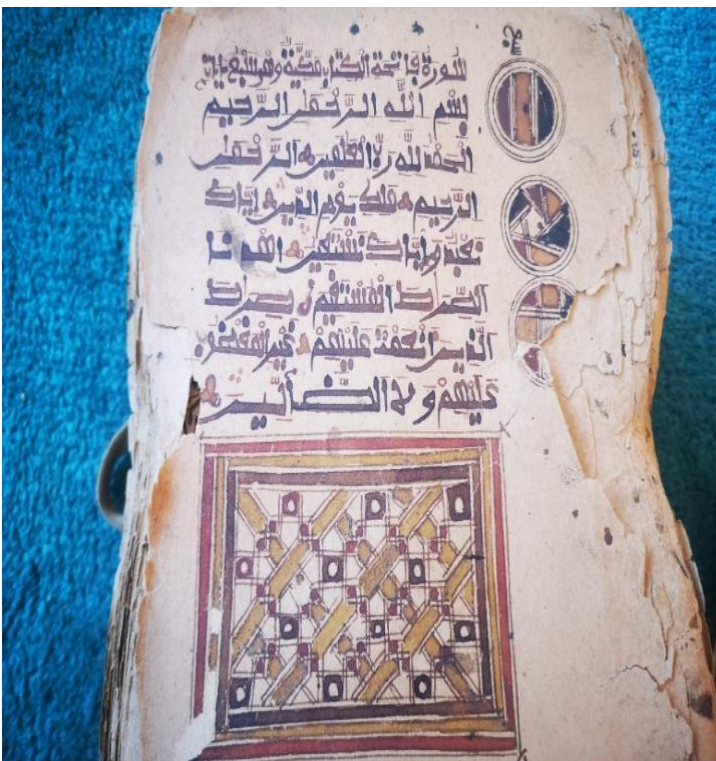 سبع
سورة فاتحة الكتاب مكية وهى سبع ايات
بسم الله الرحمن الرحيم
الحمد لله رب العلمين الرحمن
الرحيم ملك يوم الدين إياك
نعبد وإياك نستعين اهدنا
الصرط المستقيم صرط
الذين أنعمت عليهم غير المغضوب
عليهم ولا الضالين